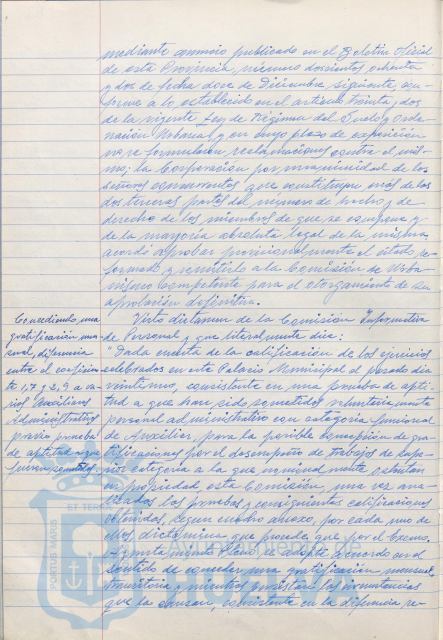 mediante anuncio publicado en el Boletín Oficial
de esta Provincia, número doscientos ochenta
y dos de fecha doce de Diciembre siguiente, con-
forme a lo establecido en el artículo treinta y dos
de la vigente Ley de Régimen del Suelo y Orde-
nación Urbana, y en cuyo plazo de exposición
no se formularon reclamaciones contra el mis-
mo; la Corporación por unanimidad de los
señores concurrentes que constituyen más de las
dos terceras partes del número de hecho y de
derecho de los miembros de que se compone y
de la mayoría absoluta legal de la misma,
acordó aprobar provisionalmente el citado, re-
formado y remitirlo a la Comisión de Urba-
nismo competente para el otorgamiento de su
aprobación definitiva.
Concediendo una
gratificación men-
sual, diferencia
entre el coeficien-
te 1,7 y 2,9 a va-
rios Auxiliares
Administrativos
previa prueba
de aptitud a que
fueron sometidos.
Visto dictamen de la Comisión Informativa
de Personal y que literalmente dice:
"Dada cuenta de la calificación de los ejercicios
celebrados en este Palacio Municipal el pasado día
veintiuno, consistente en una prueba de apti-
tud a que ha sido sometido voluntariamente
personal administrativo con categoría funcional
de Auxiliar, para la posible concepción de gra-
tificaciones por el desempeño de trabajos de supe-
rior categoría a la que nominalmente ostentan
en propiedad esta Comisión, una vez ana-
lizadas las pruebas y consiguientes calificaciones
obtenidas, según cuadro anexo, por cada uno de
ellos, dictamina que procede que por el Excmo.
Ayuntamiento Pleno se adopte acuerdo en el
sentido de conceder una gratificación mensual,
transitoria y mientras persistan las circunstancias
que la causan, consistente en la diferencia re-
PORTUS MARIS
ET TERRAE
HUELVA